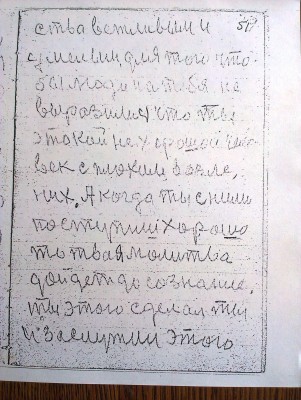 59
ства вежливым и
умелым для того что
бы люди на тебя не
выразились что ты
этокой нехороший чело
век с плохим возле,
них. А когда ты с ними
поступил хорошо
то твая молитва
дойдет до сознание,
ты этого сделал ты
и заслужил этого